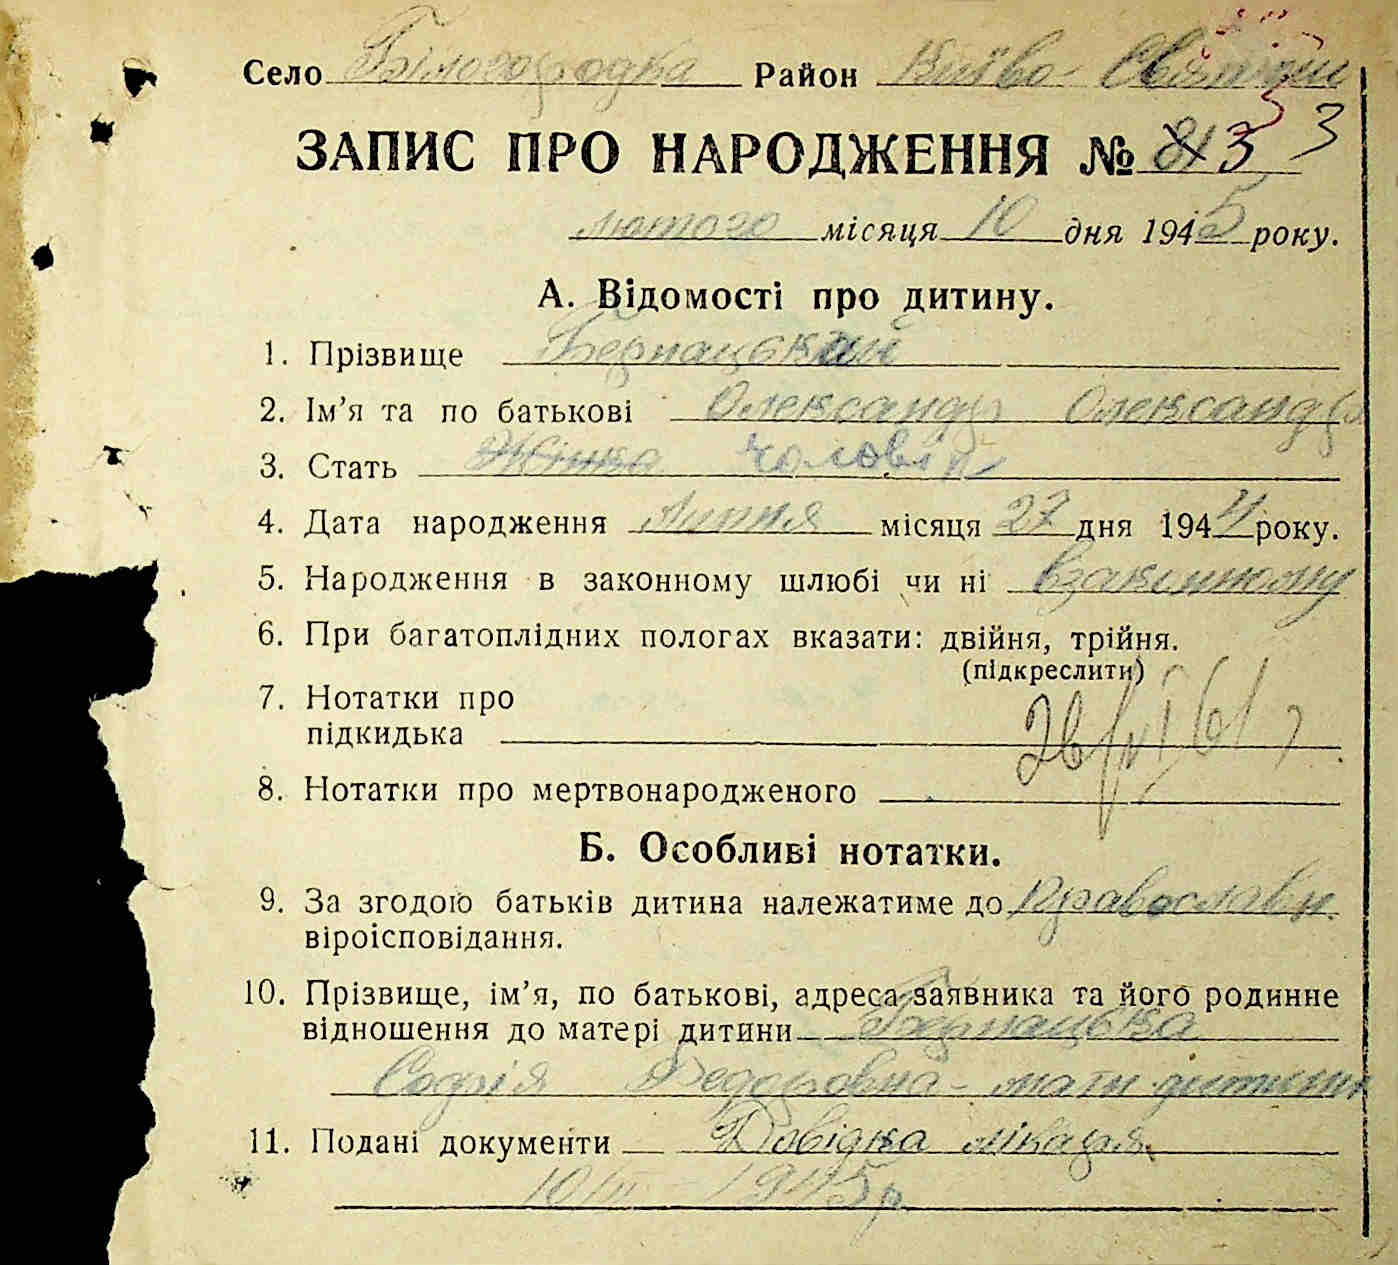 Село Білогородка Район Києво Святошин
ЗАПИС ПРО НАРОДЖЕННЯ № 81 3 3
лютого місяця 10 дня 1945 року.
А. Відомості про дитину.
1. Прізвище Бернацький
2. Ім'я та по батькові Олександр Олександр
3. Стать Жінка чоловік
4. Дата народження Липня місяця 27 дня 1944 року.
5. Народження в законному шлюбі чи ні взаконному
6. При багатоплідних пологах вказати: двійня, трійня.
(підкреслити)
7. Нотатки про
підкидька
8. Нотатки про мертвонародженого
Б. Особливі нотатки.
9. За згодою батьків дитина належатиме до Православн.
віроісповідання.
10. Прізвище, ім'я, по батькові, адреса заявника та його родинне
відношення до матері дитини Бернацька
Софія Федоровна - мати дитини
11. Подані документи Довідка лікаря
10/II - 1945 р